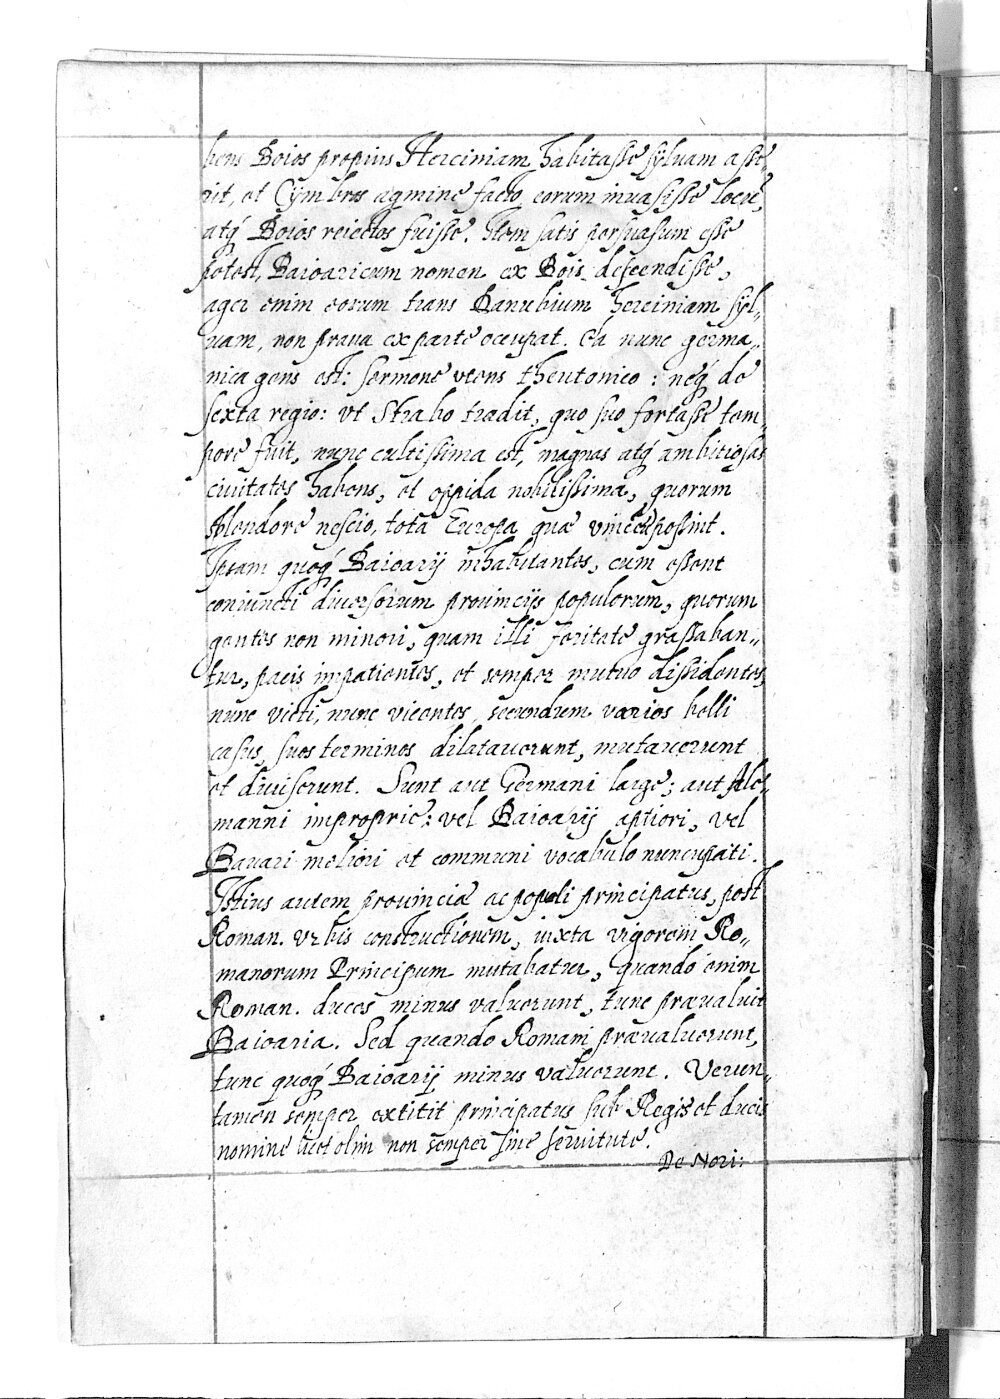 bens Boios propius Herciniam habitasse syluam asse-
rit, et Cymbros agmine facto eorum inuasisse locũ,
atq́ Boios reiectos fuisse. Item satis persuasum esse
potest, Baioaricum nomen ex Bois descendisse,
ager enim eorum trans Danubium herciniam syl-
uam, non praua ex parte occupat. Ea nunc germa-
nica gens est: sermone vtens theutonico: neq́ de
sexta regio: vt Strabo tradit, quo suo fortasse tem-
pore fuit, nunc cultissima est, magnas atq́ ambitiosas
ciuitates habens, et oppida nobilissima, quorum
splendore nescio, tota Europa quæ possint.
Istam quoq́ Baioarij inhabitantes, cum essent
coniuncti diuersorum prouincijs populorum, quorum
gentes non minori, quam illi feritate grassaban-
tur, pacis impatientes, et semper mutuo dissidentes,
nunc victi, nunc vicentes, secundum varios belli
casus, suos terminos dilatauerunt, mutauerunt
et diuiserunt. Sunt aut Germani large; aut Ale-
manni improprie: vel Baioarij aptiori, vel
Bauari meliori et communi vocabulo nuncupati.
Istius autem prouinciæ ac populi principatus, post
Roman. vrbis constructionem, iuxta vigorem Ro-
manorum Principum mutabatur, quando enim
Roman. duces minus valuerunt, tunc præualuit
Baioaria. Sed quando Romani præualuerunt,
tunc quoq́ Baioarij minus valuerunt. Verun-
tamen semper extitit principatus sub Regis et ducis
nomine licet olim non semper sine seruitute.
De Nori: